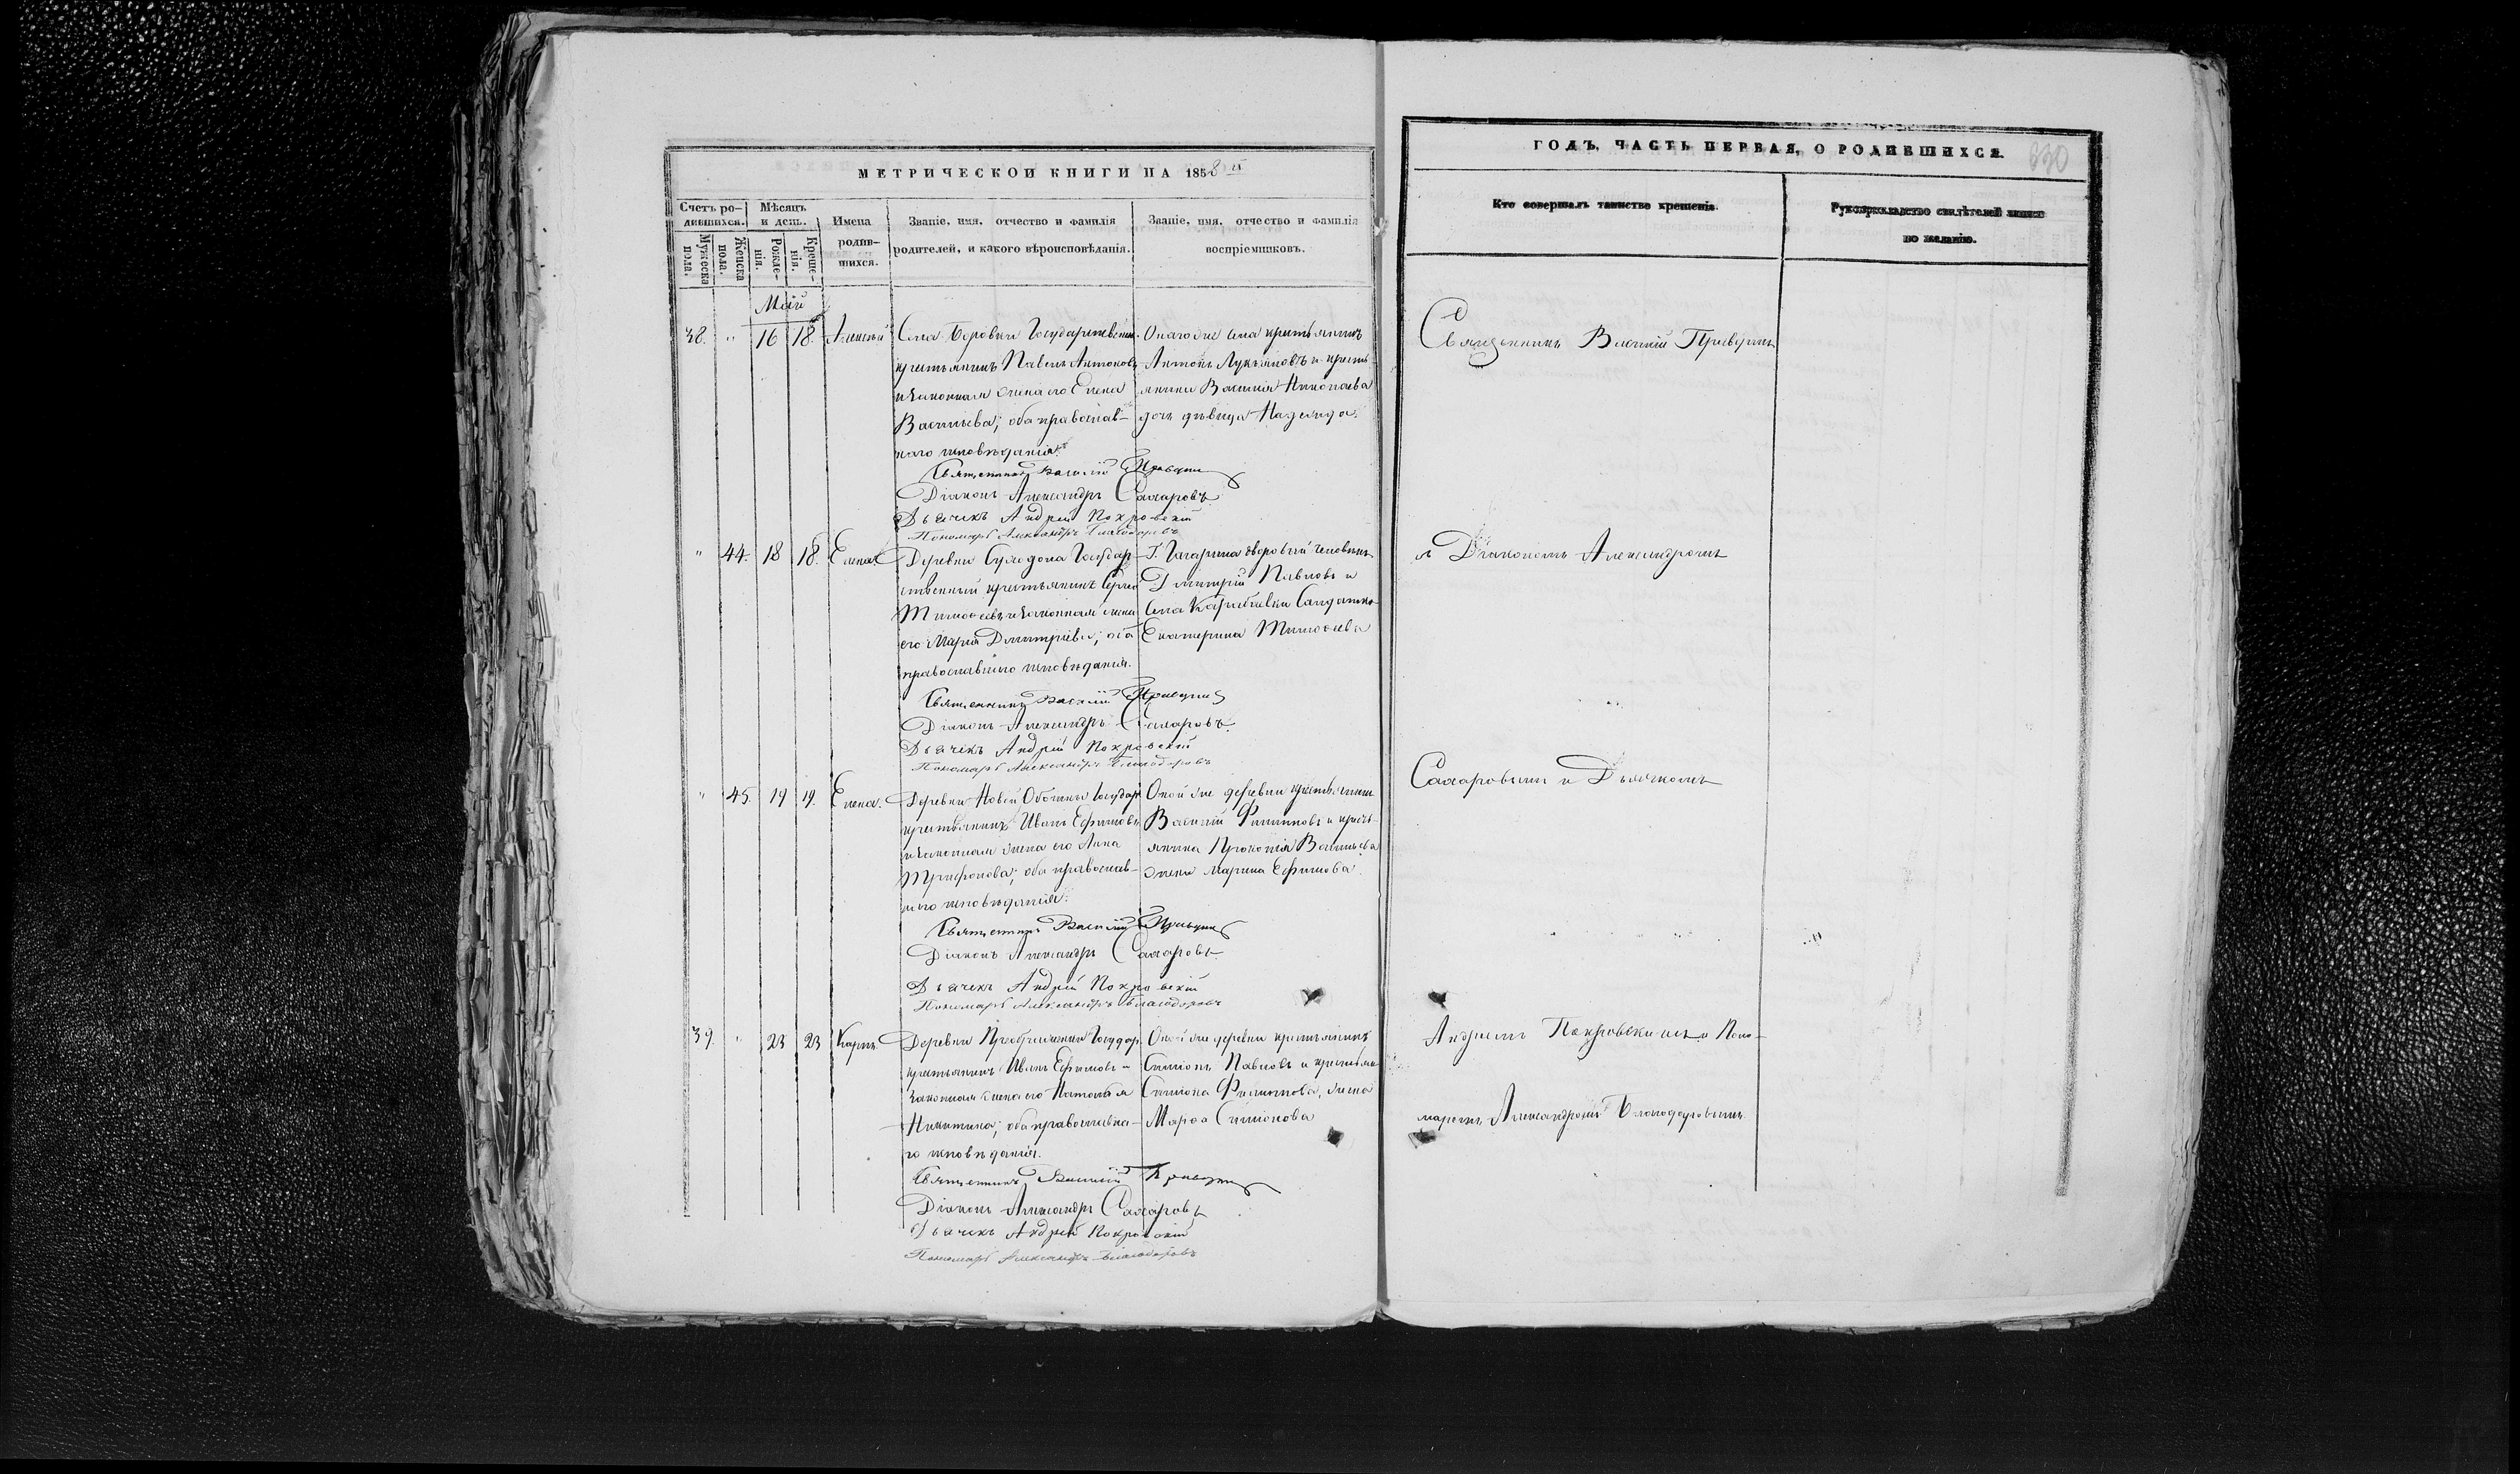 МЕТРИЧЕСКОЙ КНИГИ НА 1858 й
Счетъ родившихся.
Мужеска пола.
Женска пола.
Мѣсяцъ и день.
Рожденія.
Крещенія.
Имена родившихся.
Званіе, имя, отчество и фамилія
родителей, и какого вѣроисповѣданія.
Званіе, имя, отчество и фамилія
воспріемниковъ.
Май
38. " 16 18. Алексѣй
Села Боровки Государственн.
крестьянинъ Павелъ Антоновъ
и законная жена его Елена
Васильева; оба православ-
наго исповѣданія.
Онаго же села крестьянинъ
Антонъ Лукьяновъ и кресть-
янина Василія Николаева
дочь дѣвица Надежда.
Священникъ Василій
Діаконъ Александръ Сахаровъ
Дьячекъ Андрей Покровскій
Пономарь Александръ Благодаровъ
" 44. 18 18. Елена.
Деревни Суходола Государ-
ственный крестьянинъ Сергей
Тимоѳеевъ и законная жена
его Марія Димитріева; оба
православнаго исповѣданія.
Г. дворовый человѣкъ
Димитрій Павловъ и
села Солдатка
Екатерина Тимоѳеева
Священникъ Василій
Діаконъ Александръ Сахаровъ.
Дьячекъ Андрей Покровскій
Пономарь Александръ Благодаровъ
" 45. 19 19. Елена.
Деревни Новой Государ
крестьянинъ Иванъ Ефимовъ
и законная жена его Анна
Трифонова; оба православ-
наго исповѣданія.
Оной же деревни крестьянинъ
Василій Филиповъ и кресть-
янина Прокопія Васильева
жена Марина Ефимова.
Священникъ Василій
Діаконъ Александръ Сахаровъ
Дьячекъ Андрей Покровскій
Пономарь Александръ Благодаровъ
39. " 23 23 Карпъ.
Деревни Преображенки Государ.
крестьянинъ Иванъ Ефимовъ и
законная жена его Наталья
Никитина; оба православна-
го исповѣданія.
Оной же деревни крестьянинъ
Симіонъ Павловъ и крестьян
Симіона Филиппова, жена
Марѳа Симіонова
Священникъ Василій
Діаконъ Александръ Сахаровъ
Дьячекъ Андрей Покровскій
Пономарь Александръ Благодаровъ
ГОДЪ, ЧАСТЬ ПЕРВАЯ, О РОДИВШИХСЯ.
630
Кто совершалъ таинство крещенія.
Рукоприкладство свидѣтелей записи
по желанію.
Священникъ Василій
съ Діакономъ Александромъ
Сахаровымъ и Дьячкомъ
Андреемъ Покровскимъ и Поно-
маремъ Александромъ Благодаровымъ.